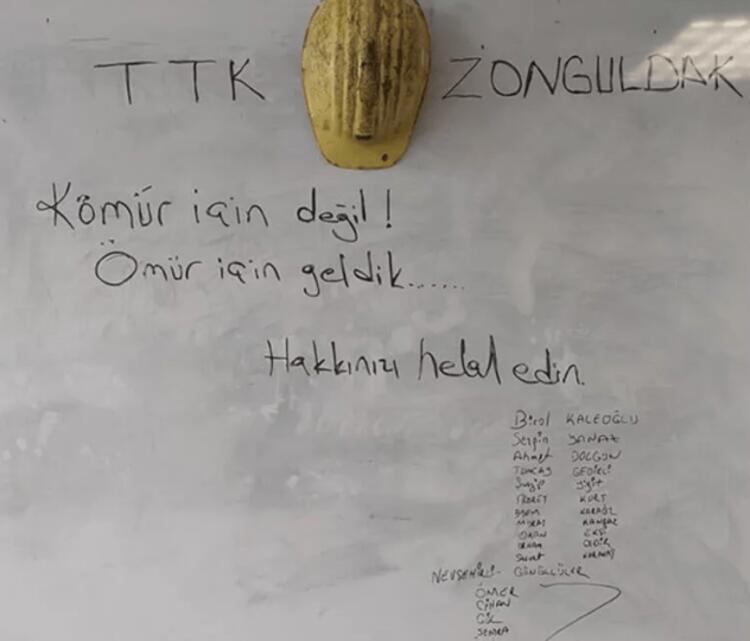 TTK ZONGULDAK
Kömür için değil!
Ömür için geldik.......
Hakkınızı helal edin.
Birol KALEOĞLU
Serpin
Ahmet DOLGUN
TUNCAY GEDİKLİ
yiğit
KURT
MURAT
OKAN EKŞİ
ORHAN
Suat
NEVŞEHİRLİ GÖNÜLLÜLER
ÖMER
CİHAN
GÜL
SEMRA